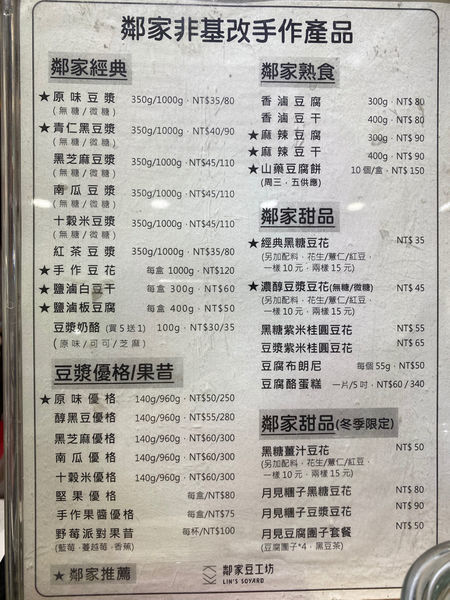 鄰家非基改手作產品
鄰家經典
★原味豆漿 350g/1000g · NT$35/80
(無糖/微糖)
★青仁黑豆漿 350g/1000g · NT$40/90
(無糖/微糖)
黑芝麻豆漿 350g/1000g · NT$45/110
(無糖/微糖)
南瓜豆漿 350g/1000g · NT$45/110
(無糖/微糖)
十穀米豆漿 350g/1000g · NT$45/110
(無糖/微糖)
紅茶豆漿 350g/1000g · NT$35/80
★手作豆花 每盒 1000g · NT$120
★鹽滷白豆干 每盒 300g · NT$60
★鹽滷板豆腐 每盒 400g · NT$50
豆漿奶酪 (買5送1) 100g · NT$30/35
(原味/可可/芝麻)
豆漿優格/果昔
★原味優格 140g/960g · NT$50/250
醇黑豆優格 140g/960g · NT$55/280
黑芝麻優格 140g/960g · NT$60/300
南瓜優格 140g/960g · NT$60/300
十穀米優格 140g/960g · NT$60/300
堅果優格 每盒/NT$80
手作果醬優格 每盒/NT$75
野莓派對果昔 每杯/NT$100
(藍莓·蔓越莓·香蕉)
★鄰家推薦
鄰家熟食
香滷豆腐 300g · NT$ 80
香滷豆干 400g · NT$ 80
★麻辣豆腐 300g · NT$ 90
★麻辣豆干 400g · NT$ 90
★山藥豆腐餅 10個/盒 · NT$ 150
(周三、五供應)
鄰家甜品
★經典黑糖豆花 NT$ 35
(另加配料,花生/薏仁/紅豆,
一樣10元,兩樣15元)
★濃醇豆漿豆花(無糖/微糖) NT$ 45
(另加配料,花生/薏仁/紅豆,
一樣10元,兩樣15元)
黑糖紫米桂圓豆花 NT$ 55
豆漿紫米桂圓豆花 NT$ 65
豆腐布朗尼 每個55g · NT$50
豆腐酪蛋糕 一片/5吋 · NT$60 / 340
鄰家甜品(冬季限定)
黑糖薑汁豆花 NT$ 50
(另加配料,花生/薏仁/紅豆,
一樣10元,兩樣15元)
月見糰子黑糖豆花 NT$ 80
月見糰子豆漿豆花 NT$ 90
月見豆腐團子套餐 NT$ 50
(豆腐團子*4,黑豆茶)
鄰家豆工坊
LIN'S SOYARD